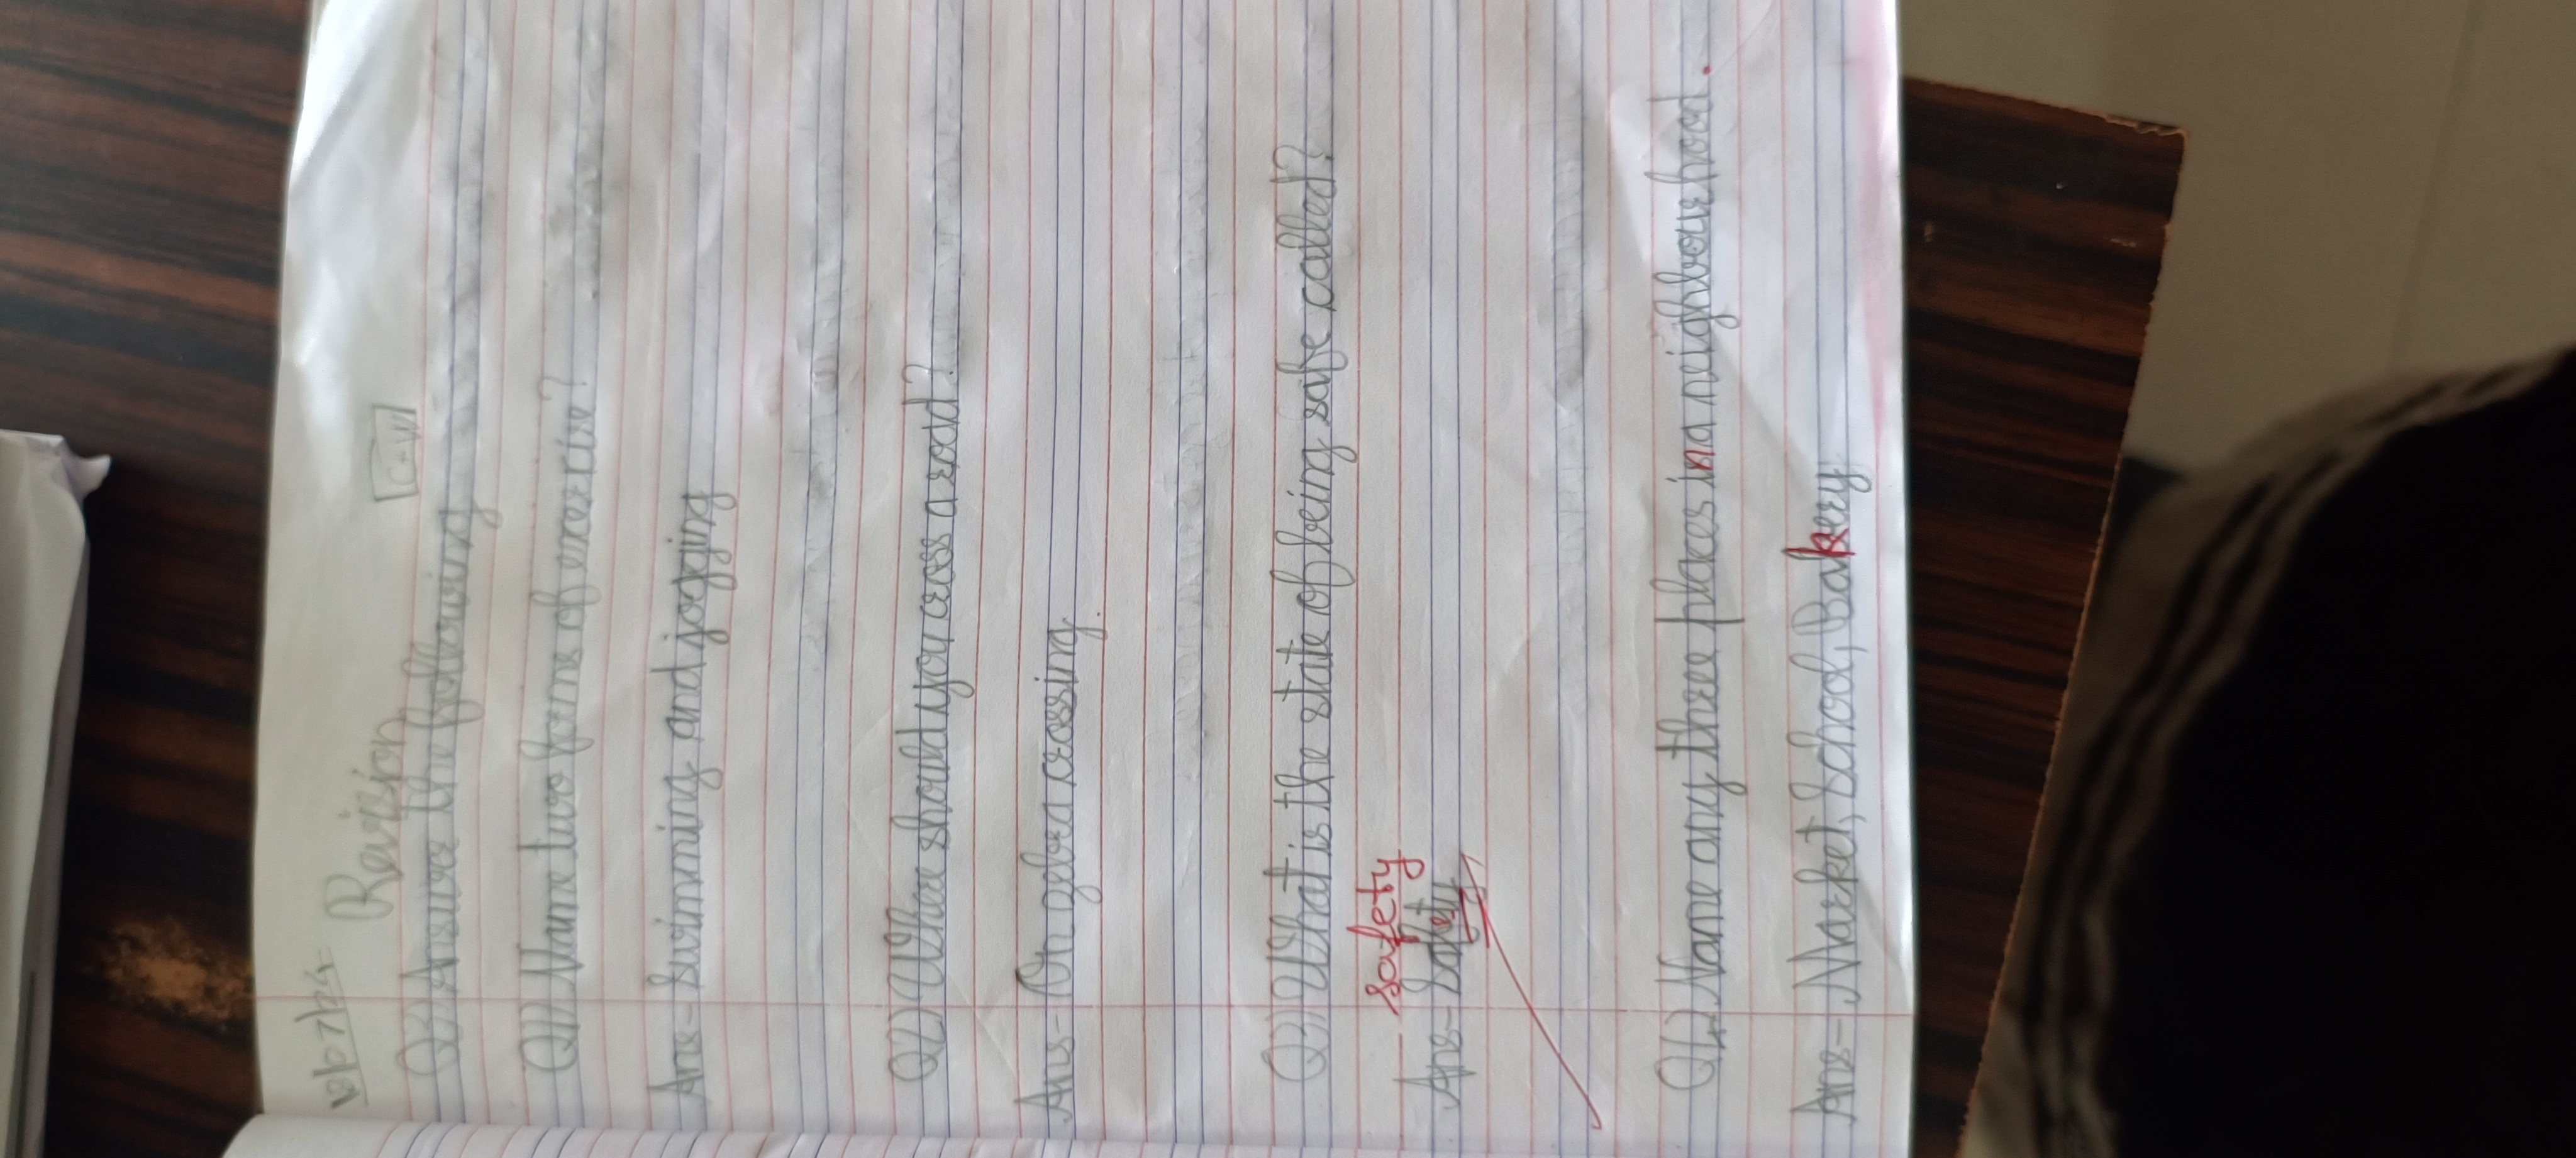 Revision
C-W
Q3) Answer the following
Q1) Name two forms of excersise?
Ans- Swimming and jogging
Q2) Where should you cross a road?
Ans- On zebra crossing.
Q3) What is the state of being safe called?
safety
Ans- Safety
Q4) Name any three places in a neighbourhood.
Ans- Market, School, Bakery